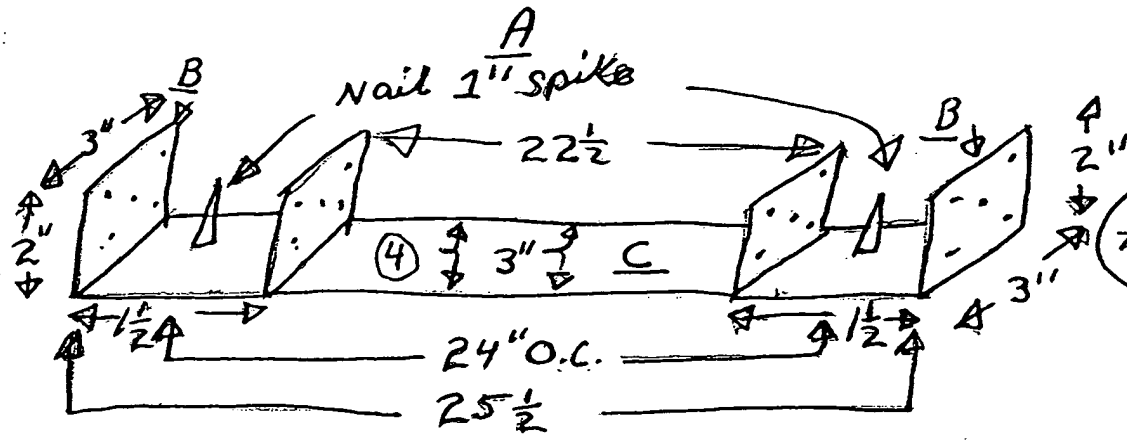 A
B
Nail 1" Spike
3"
22 1/2
B
2"
2"
④ 3" C
3"
1 1/2
1 1/2
24" O.C.
25 1/2